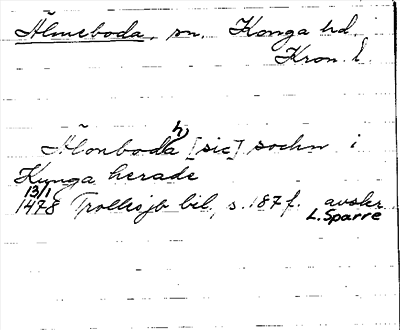 Älmeboda, sn. Konga hd.
Kron. l.
Älonboda h) [sic] sochn i
Kunga herade
13/1
1478 Trollesjb bil. s. 187 f. avskr.
L. Sparre